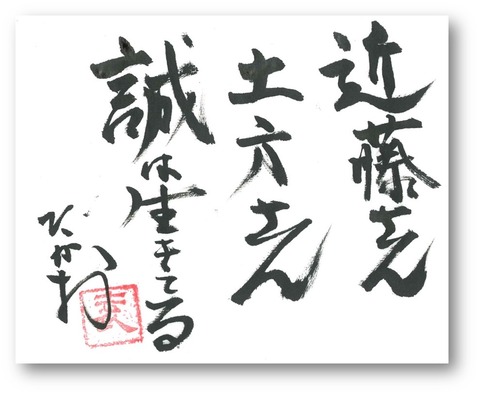 近藤さん
土方さん
誠は生きてる
たかお